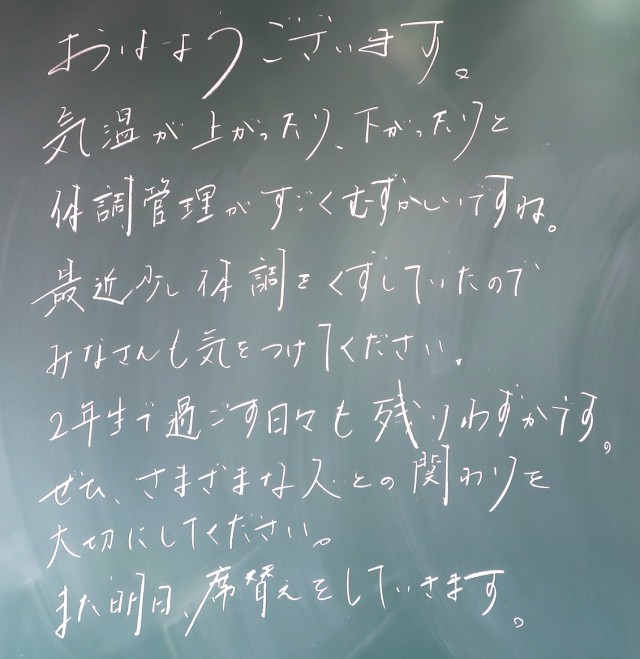 おはようございます。
気温が上がったり、下がったりと
体調管理がすごくむずかしいですね。
最近少し体調をくずしていたので
みなさんも気をつけてください。
2年生で過ごす日々も残りわずかです。
ぜひ、さまざまな人との関わりを
大切にしてください。
また明日、席替えをしていきます。